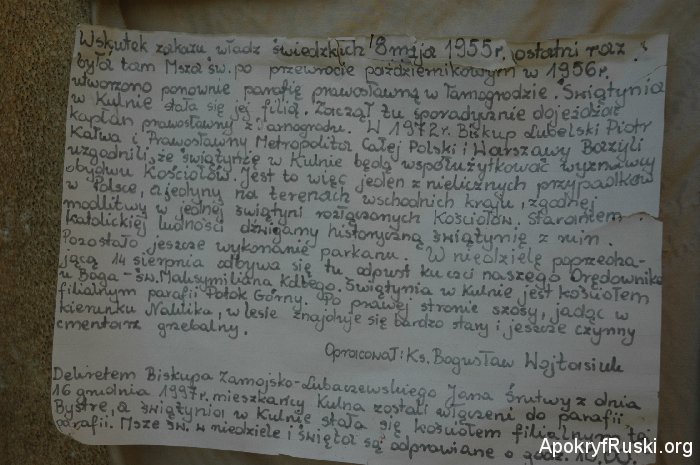 Wskutek zakazu władz świedzkich 18 maja 1955r. ostatni raz
była tam Msza św. po przewrocie październikowym w 1956r.
utworzono ponownie parafię prawosławną w Tarnogrodzie. Świątynia
w Kulnie stała się jej filią. Zaczął tu sporadycznie dojeżdżać
kapłan prawosławny z Tarnogrodu. W 1972r. Biskup Lubelski Piotr
Kałwa i Prawosławny Metropolitor Całej Polski i Warszawy Bazyli
uzgodnili, że świątynię w Kulnie będą współużytkować wyznawcy
obydwu Kościołów. Jest to więc jeden z nielicznych przypadków
w Polsce, a jedyny na terenach wschodnich kraju, zgodnej
modlitwy w jednej świątyni rozłączonych Kościołów. Staraniem
katolickiej ludności dźwigamy historyczną świątynię z ruin.
Pozostało jeszcze wykonanie parkanu. W niedzielę poprzedza-
jącą 14 sierpnia odbywa się tu odpust ku czci naszego Orędownika
u Boga - św. Maksymiliana Kolbego. Świątynia w Kulnie jest kościołem
filialnym parafii Potok Górny. Po prawej stronie szosy, jadąc w
kierunku Naklika, w lesie znajduje się bardzo stary i jeszcze czynny
cmentarz grzebalny.
Opracował: Ks. Bogusław Wojtasiuk
Dekretem Biskupa Zamojsko-Lubaczewskiego Jana Śrutwy z dnia
16 grudnia 1997r. mieszkańcy Kulna zostali włączeni do parafii
Bystre, a świątynia w Kulnie stała się kościołem filialnym tej
parafii. Msze św. w niedziele i święta są odprawiane o godz.
ApokryfRuski.org